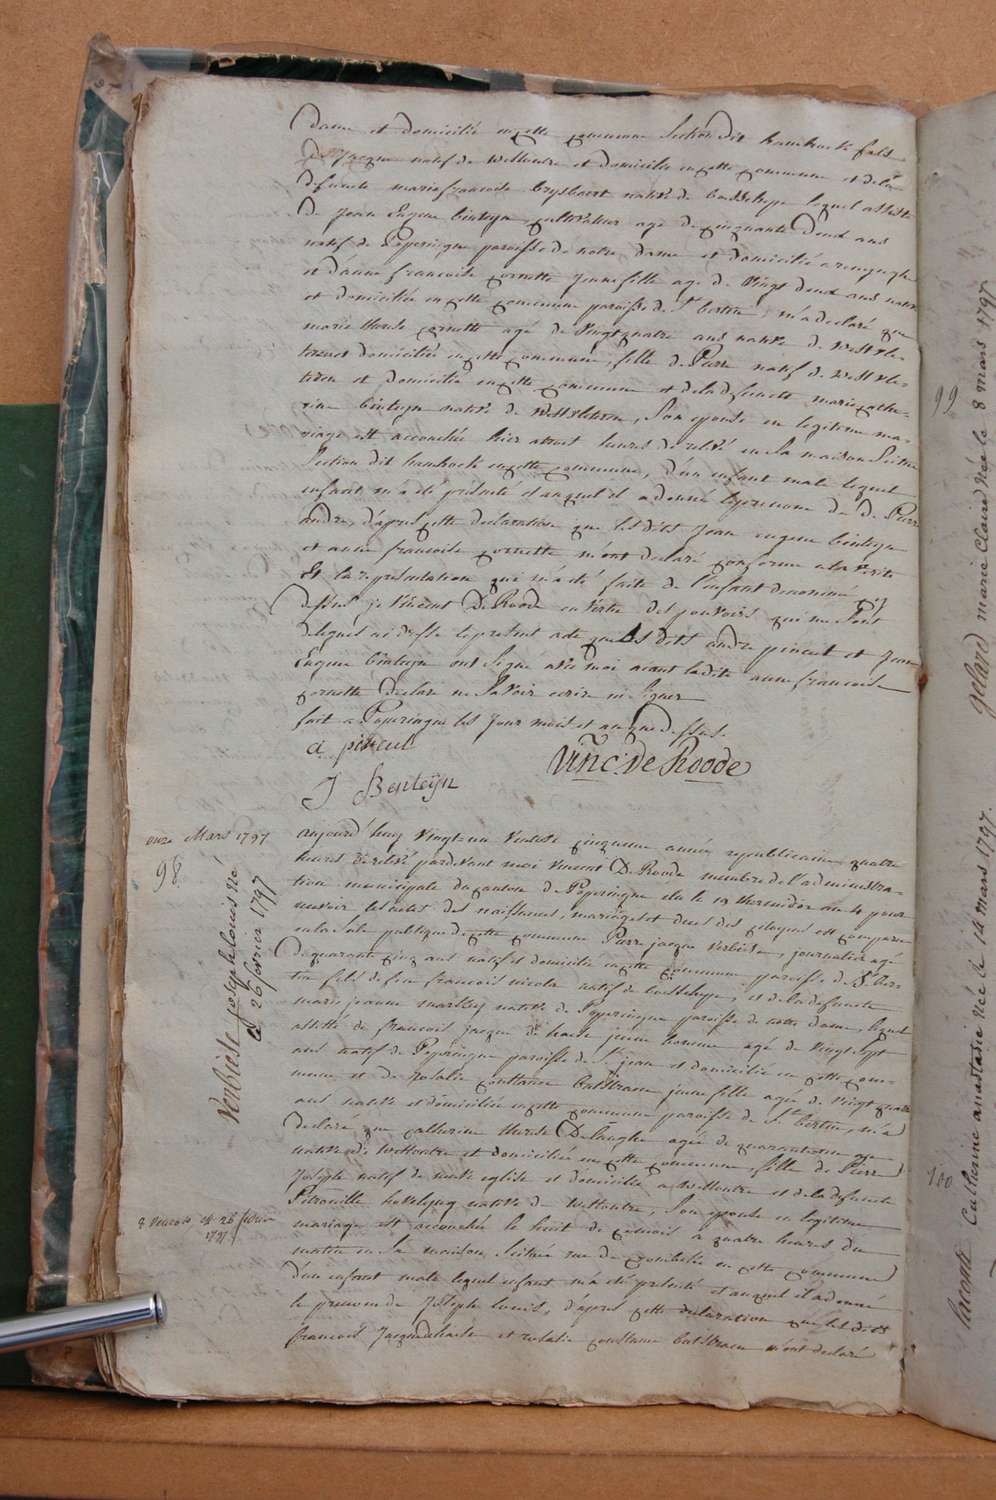 dame et domicilié en cette commune Section dit hamhoek fils
de Jacque natif de et domicilié en cette commune et de la
defuncte marie francoise natīve de lequel assisté
De Jean Eugene binteyn, cultivateur agé de cinquante Deux ans
natif de Poperingue paroisse de notre dame et domicilié a
et d'anne francoise cornette jeune fille age de Vingt deux ans native
et domiciliée en cette commune paroisse de St bertin, m'a declaré que
marie therese cornette agé de Vingt quatre ans native de Westvle-
teren et domiciliée en cette commune, fille de Pierre natif de Westvle-
tren et domicilié en cette commune et de la defuncte marie cathe-
rine binteyn native de Westvletren, Son epouse en legitime ma-
riage est accouchée hier a huit heures de relevé en Sa maison Scitue
Section dit hamhoek en cette commune, d'un enfant male lequel
enfant m'a été présenté et auquel il a donné le prenome de Pierre
andre, d'après cette declaration que les dits Jean eugene binteyn
et anne francoise cornette m'ont declaré conforme a la verité
Et la representation qui m'a été faite de l'enfant denommé cy
dessus je Vincent De Roode en vertu des pouvoirs qui me Sont
delegués ai dressé le présent acte que les dits andre pincel et Jean
Eugene binteyn ont Signé avec moi aiant ladite anne francoise
cornette declaré ne Savoir ecrire ni Signer
fait a Poperingue les Jour mois et an que dessus.
a pincel
Vinc: de Roode
J Benteÿn
onze Mars 1797
98
Verbiese joseph louis né
le 26 fevrier 1797
aujourd'huy Vingt un Ventose cinqueme année republicaine quatre
heures de relevé pardevant moi Vincent De Roode membre de l'administra-
tion municipale du canton de Poperingue elu le 19 thermidor an 4 pour
recevoir les actes des naissances, mariages et deces des citoyens est comparu
en la Sale publique de cette commune Pierre jacque Verbiese, journalier agé
De quarante cinq ans natif et domicilié en cette commune paroisse de St ber-
tin fils de feu francois nicolas natif de et de la defuncte
marie jeanne native de Poperingue paroisse de notre dame, lequel
assisté de francois jacque de haese jeune homme agé de Vingt Sept
ans natif de Poperingue paroisse de St jean et domicilié en cette com-
mune et de rosalie constance jeune fille agée de Vingt quatre
ans native et domiciliée en cette commune paroisse de St bertin, m'a
declaré que catherine therese agée de quarante
native de et domiciliée en cette commune, fille de Pierre
Joseph natif de eglise et domicilié a et de la defuncte
Petronille native de Son epouse en legitime
mariage est accouchée le huit de a quatre heures du
matin en Sa maison Scitué rue de en cette commune
d'un enfant male lequel enfant m'a été présenté et auquel il a donné
le prenom de Joseph louis, d'après cette declaration que les dits
francois Jacque de haese et rosalie constance m'ont declaré
8 le 26 fevrier
1797
99
gelard marie claire née le 8 mars 1797
100
Catherine anastasie née le 14 mars 1797.